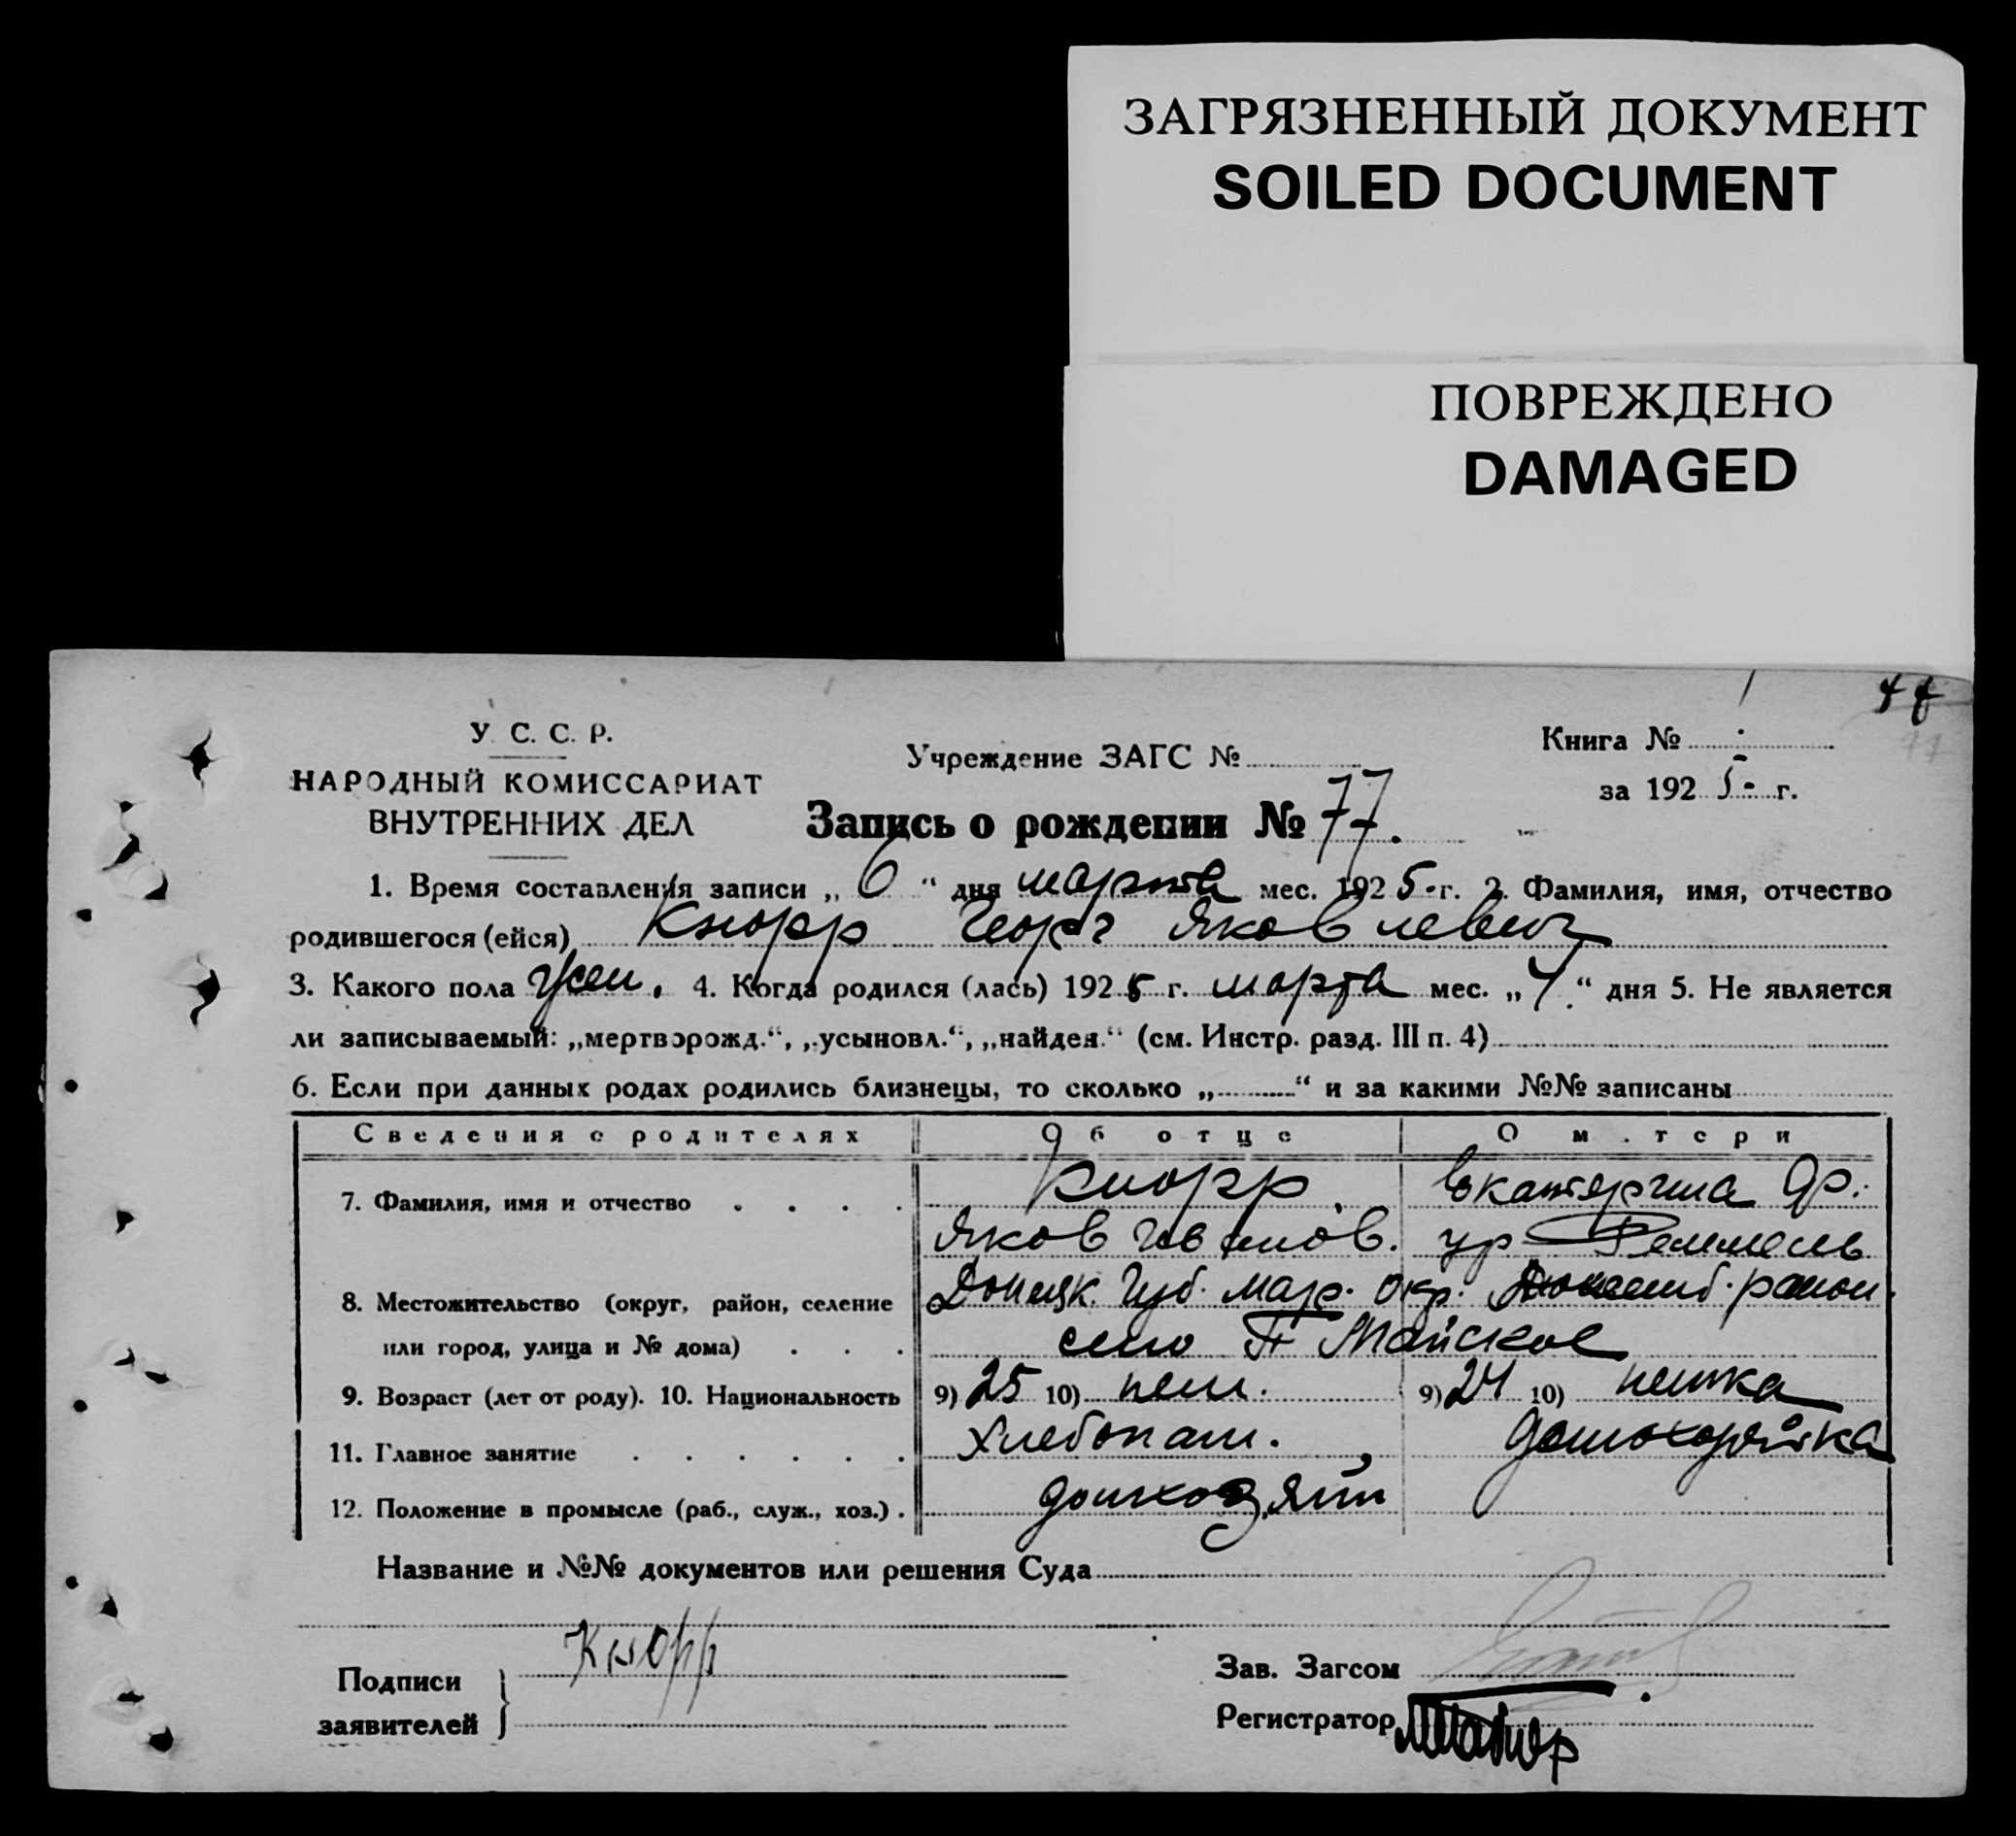 ЗАГРЯЗНЕННЫЙ ДОКУМЕНТ
SOILED DOCUMENT
ПОВРЕЖДЕНО
DAMAGED
У. С. С. Р.
НАРОДНЫЙ КОМИССАРИАТ
ВНУТРЕННИХ ДЕЛ
Учреждение ЗАГС №
Книга №
за 1925 г.
Запись о рождении № 77.
1. Время составления записи „ 6 “ дня марта мес. 1925 г. 2. Фамилия, имя, отчество
родившегося (ейся) Кнорр Георг Яковлевич
3. Какого пола 4. Когда родился (лась) 1925 г. марта мес. „ 4 “ дня 5. Не является
ли записываемый: „мертворожд.“, „усыновл.“, „найден.“ (см. Инстр. разд. III п. 4)
6. Если при данных родах родились близнецы, то сколько „ “ и за какими №№ записаны
Сведения о родителях Об отце О матери
7. Фамилия, имя и отчество Кнорр Екатерина
Яков Иванов. ур
8. Местожительство (округ, район, селение Донецк. Губ. Мар. Окр. район.
или город, улица и № дома) село Майское
9. Возраст (лет от роду). 10. Национальность 9) 25 10) нем. 9) 24 10) немка
11. Главное занятие Хлебопаш. домохозяйка
12. Положение в промысле (раб., служ., хоз.) домхозяин
Название и №№ документов или решения Суда
Кнорр
Подписи заявителей
Зав. Загсом
Регистратор